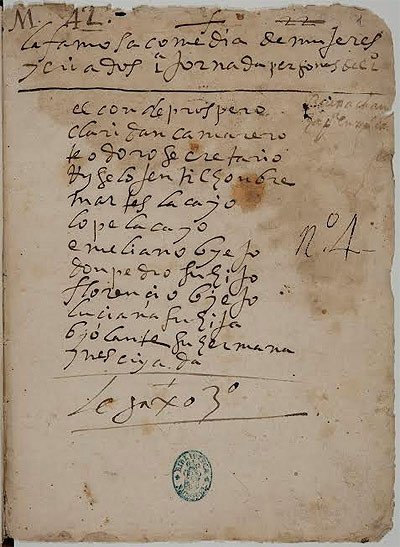 M A2.
la famosa comedia de mujeres
y criados 1ª jornada personas della
el conde prospero
claridan camarero
teodoro secretario
Riselo jentilhombre
martes lacayo
lope lacayo
emeliano biejo
don pedro su hijo
florencio biejo
luciana su hija
biolante su hermana
ynes criada
nº 4
legaxo 3º
BIBLIOTECA